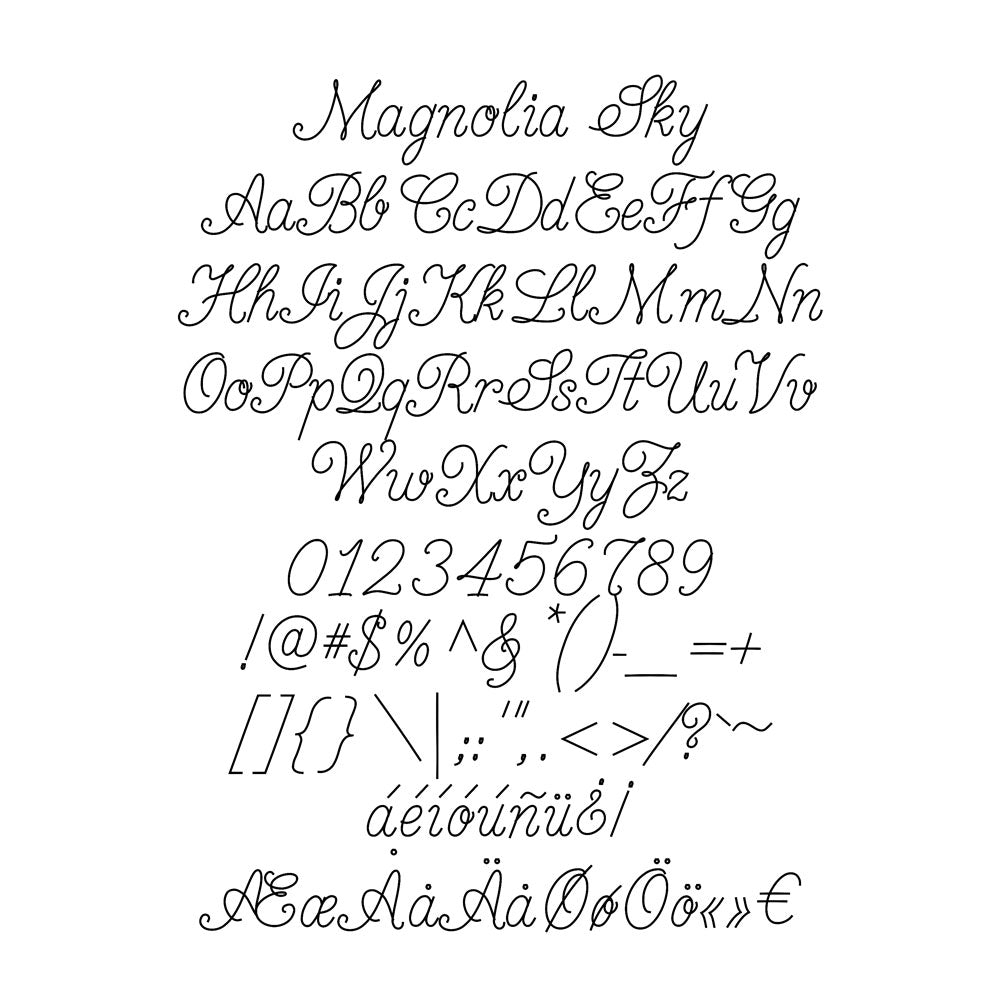 Magnolia Sky
AaBbCcDdEeFfGg
HhIiJjKkLlMmNn
OoPpQqRrSsTtUuVv
WwXxYyZz
0123456789
!@#$%^&*()-_=+
[]{}\|;:'",.<>/?`~
áéíóúñü¿¡
ÆæÅåÄäØøÖö«»€